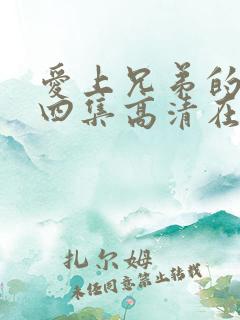 爱上兄弟的
四集高清在
扎尔姆
未经同意禁止转载